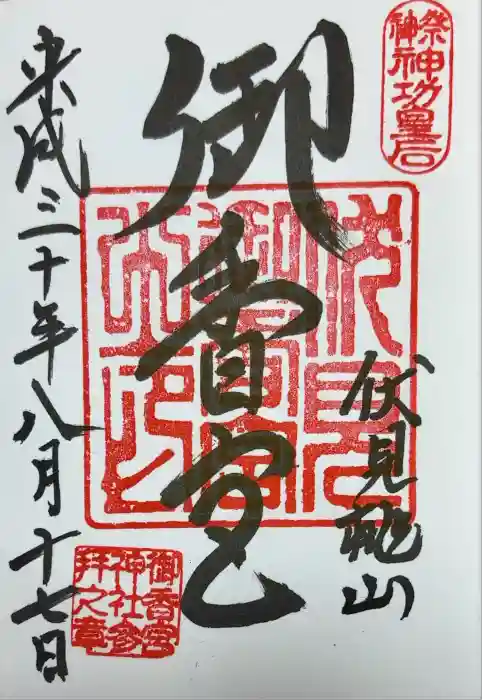 祭神
神功皇后
伏見桃山
御香宮
平成三十年八月十七日
伏見
御香宮
大印
御香宮
神社参
拝之章